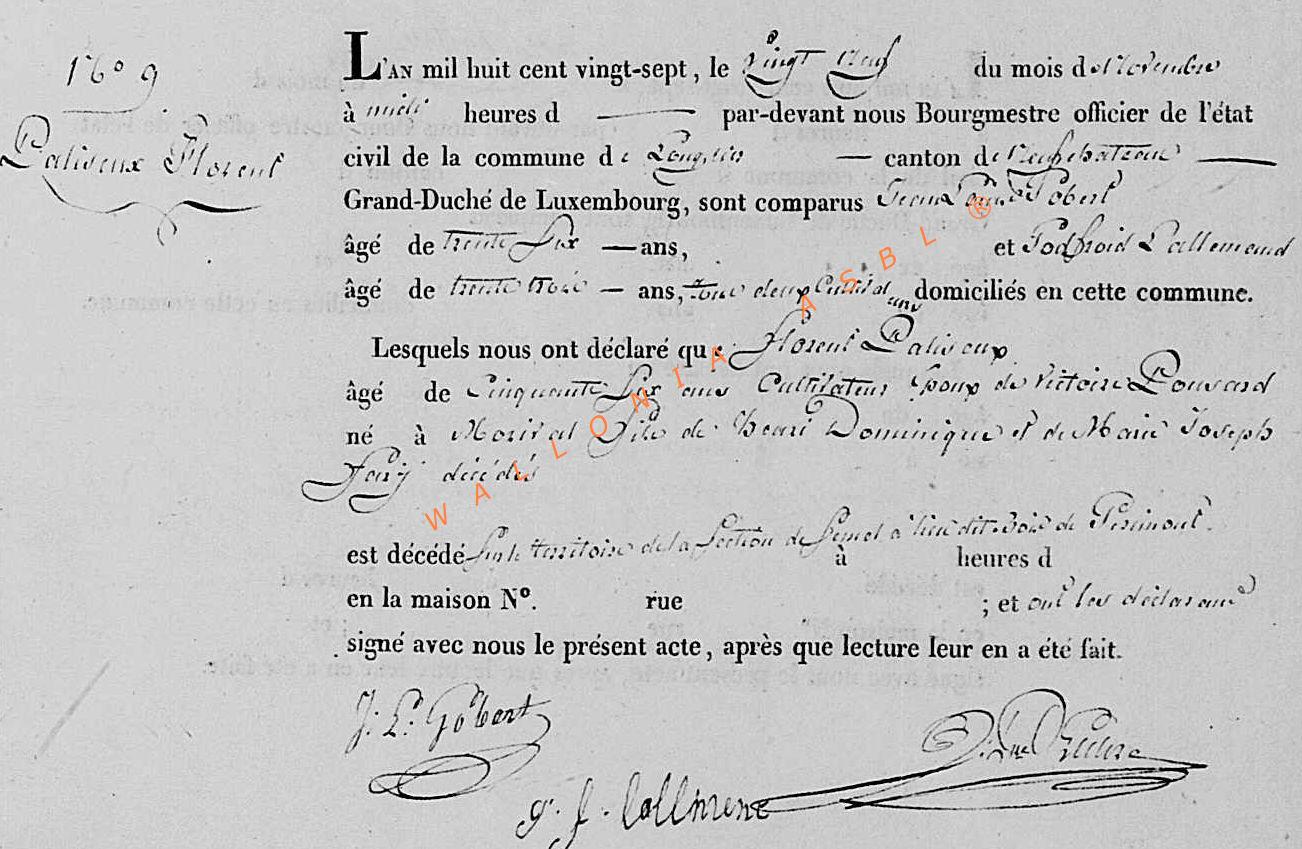 N.° 9
Paliseux Florent
L'AN mil huit cent vingt-sept, le vingt neuf du mois de Novembre
à midi heures d — par-devant nous Bourgmestre officier de l'état
civil de la commune de Longlier — canton de Neufchateau —
Grand-Duché de Luxembourg, sont comparus Jean Gobert
âgé de trente six — ans, et Godfroid Lallemand
âgé de trente trois — ans, tous deux Cultivateurs domiciliés en cette commune.
Lesquels nous ont déclaré que Florent Paliseux
âgé de Cinquante six ans Cultivateur Epoux de Victoire
né à Morival fils de Henri Dominique et de Marie Joseph
décédés
est décédé sur le territoire de la section de à lieu dit Bois de
à heures d
en la maison N°. rue ; et ont les déclarans
signé avec nous le présent acte, après que lecture leur en a été fait.
J. L. Gobert
g. f. lallment
WALLONIA ASBL ®